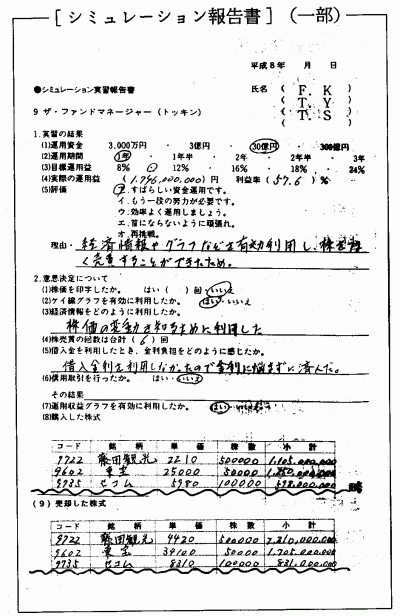 [シミュレーション報告書](一部)
平成8年 月 日
●シミュレーション実習報告書
氏名 ( F. K )
( T. Y )
( T. S )
( )
9 ザ・ファンドマネージャー(トッキン)
1.実習の結果
(1)運用資金 3,000万円 ・ 3億円 ・ 30億円 ・ 300億円
(2)運用期間 1年 ・ 1年半 ・ 2年 ・ 2年半 ・ 3年
(3)目標運用益 8% ・ 12% ・ 16% ・ 18% ・ 24%
(4)実際の運用益 ( 1,746,000,000 ) 円 利益率 ( 57.6 ) %
(5)評価 ア.すばらしい資金運用です。
イ.もう一段の努力が必要です。
ウ.効率よく運用しましょう。
エ.首にならないように頑張れ。
オ.再挑戦。
理由・経済情報やグラフなどを有効利用し、株を
く売買することができたため。
2.意思決定について
(1)株価を印字したか。 はい( )回・いいえ
(2)ケイ線グラフを有効に利用したか。 はい・いいえ
(3)経済情報をどのように利用したか。
株価の変動を知るために利用した
(4)株売買の回数は合計( 6 )回
(5)借入金を利用したとき、金利負担をどのように感じたか。
借入金利を利用しなかったので金利に悩まずに済んだ。
(6)信用取引を行ったか。 はい・いいえ
その結果
(7)運用収益グラフを有効に利用したか。 はい・いいえ
(8)購入した株式
コード 銘柄 単価 株数 小計
9722 藤田観光 2210 500000 1,105,000,000
9602 東宝 25000 50000 1,250,000,000
9735 セコム 5980 100000 598,000,000
(9)売却した株式
コード 銘柄 単価 株数 小計
9722 藤田観光 4420 500000 2,210,000,000
9602 東宝 34100 50000 1,705,000,000
9735 セコム 8310 100000 831,000,000